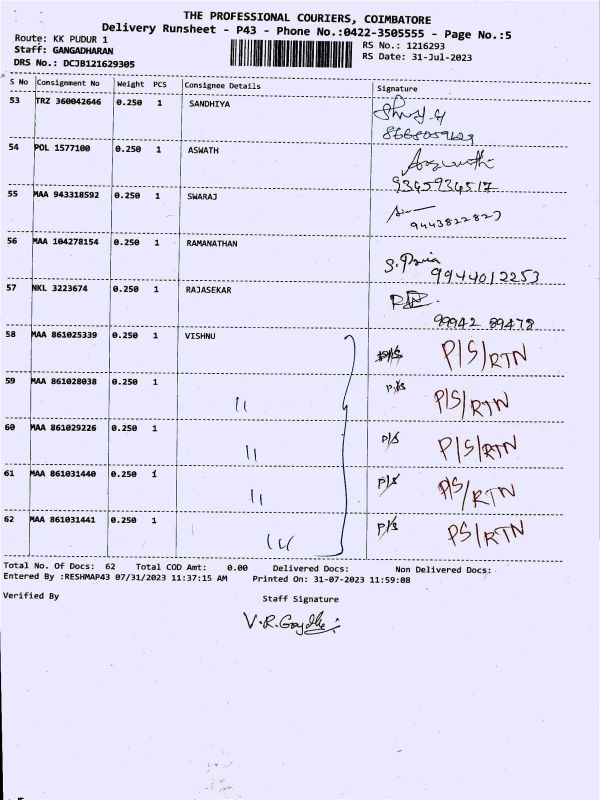 THE PROFESSIONAL COURIERS, COIMBATORE
Delivery Runsheet - P43 - Phone No.:0422-3505555 - Page No.:5
Route: KK PUDUR 1
RS No.: 1216293
Staff: GANGADHARAN
RS Date: 31-Jul-2023
DRS No.: DCJB121629305
S No Consignment No Weight PCS Consignee Details Signature
53 TRZ 360042646 0.250 1 SANDHIYA
8668059629
54 POL 1577100 0.250 1 ASWATH
9345934517
55 MAA 943318592 0.250 1 SWARAJ
9443822827
56 MAA 104278154 0.250 1 RAMANATHAN S. Priya
9944012253
57 NKL 3223674 0.250 1 RAJASEKAR
99942 89478
58 MAA 861025339 0.250 1 VISHNU P/S P/S/RTN
59 MAA 861028038 0.250 1 11 P/S P/S/RTN
60 MAA 861029226 0.250 1 11 P/S P/S/RTN
61 MAA 861031440 0.250 1 11 P/S P/S/RTN
62 MAA 861031441 0.250 1 P/S PS/RTN
Total No. Of Docs: 62 Total COD Amt: 0.00 Delivered Docs: Non Delivered Docs:
Entered By :RESHMAP43 07/31/2023 11:37:15 AM Printed On: 31-07-2023 11:59:08
Verified By Staff Signature